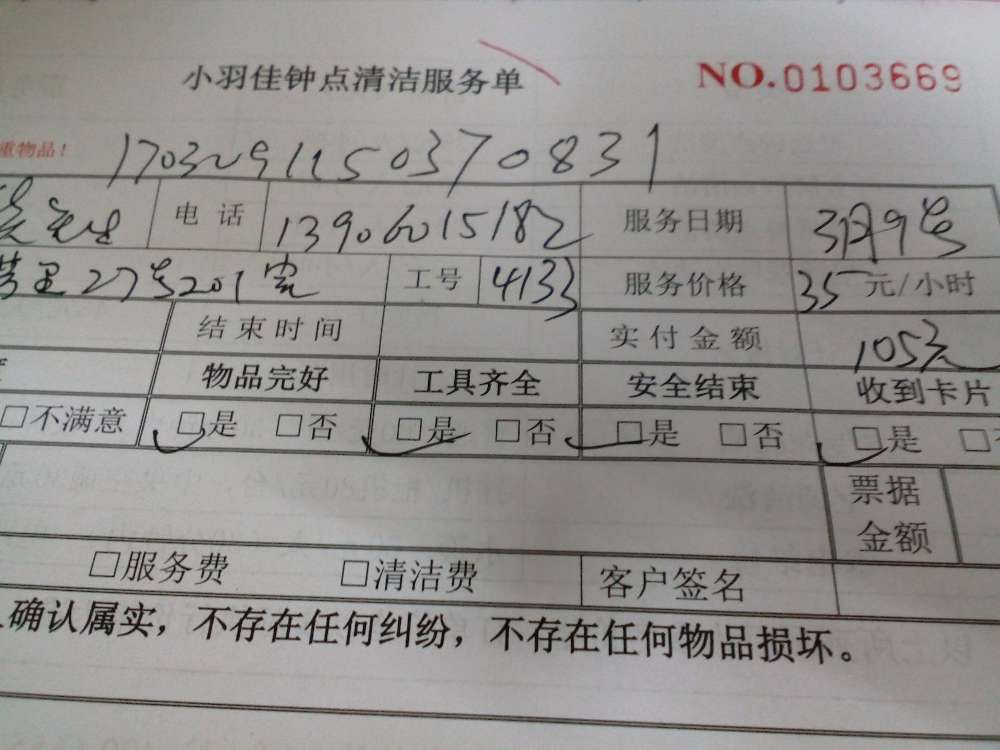 小羽佳钟点清洁服务单 NO.0103669
重物品！ 1703291150370831
先生 电话 13906015182 服务日期 3月9号
里27号201室 工号 4133 服务价格 35元/小时
结束时间 实付金额 105元
物品完好 工具齐全 安全结束 收到卡片
□不满意 □是 □否 □是 □否 □是 □否 □是
票据
金额
□服务费 □清洁费 客户签名
确认属实，不存在任何纠纷，不存在任何物品损坏。